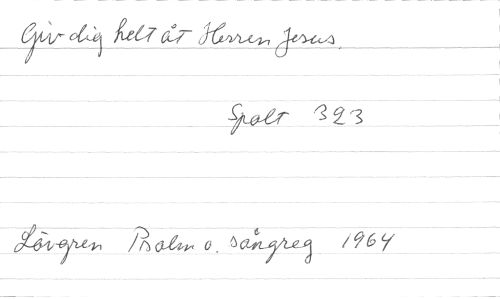 Giv dig helt åt Herren Jesus.
Spalt 323
Lövgren Psalm o. sångreg 1964